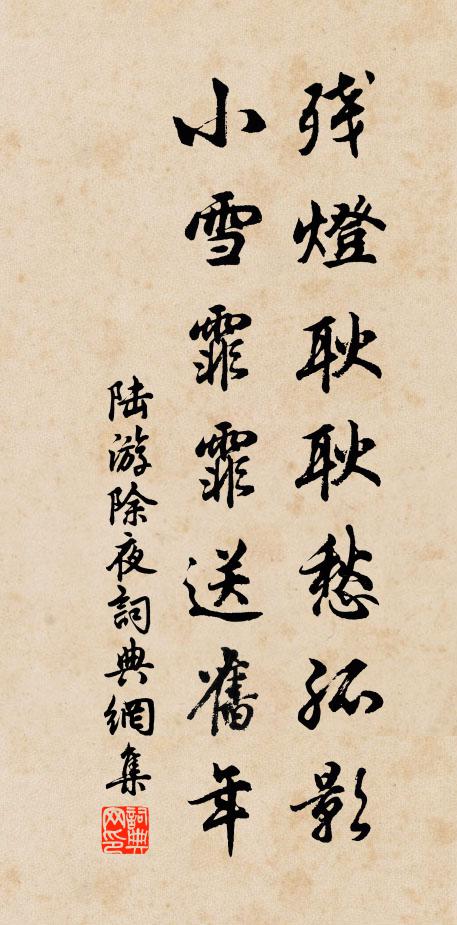 残燈耿耿愁孤影
小雪霏霏送舊年
陆游除夜詞典網集
詞典网印